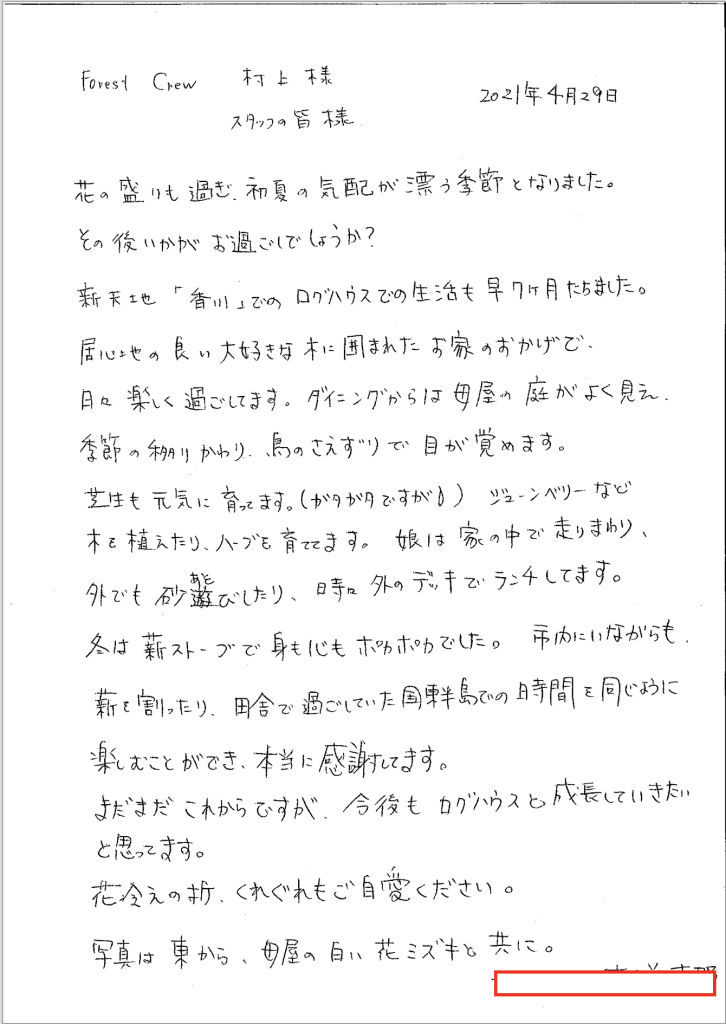 Forest Crew 村上様
2021年4月29日
スタッフの皆様
花の盛りも過ぎ、初夏の気配が漂う季節となりました。
その後いかがお過ごしでしょうか?
新天地「香川」でのログハウスでの生活も早7ヶ月たちました。
居心地の良い大好きな木に囲まれたお家のおかげで、
日々楽しく過ごしてます。ダイニングからは母屋の庭がよく見え、
季節の移りかわり、鳥のさえずりで目が覚めます。
芝生も元気に育ってます。(ガタガタですが) ジューンベリーなど
木を植えたり、ハーブを育ててます。娘は家の中で走りまわり、
外でも砂遊びしたり、時々外のデッキでランチしてます。
冬は薪ストーブで身も心もポカポカでした。市内にいながらも、
薪を割ったり、田舎で過ごしていた国東半島での時間を同じように
楽しむことができ、本当に感謝してます。
まだまだこれからですが、今後もログハウスと成長していきたい
と思ってます。
花冷えの折、くれぐれもご自愛ください。
写真は東から、母屋の白い花ミズキと共に。